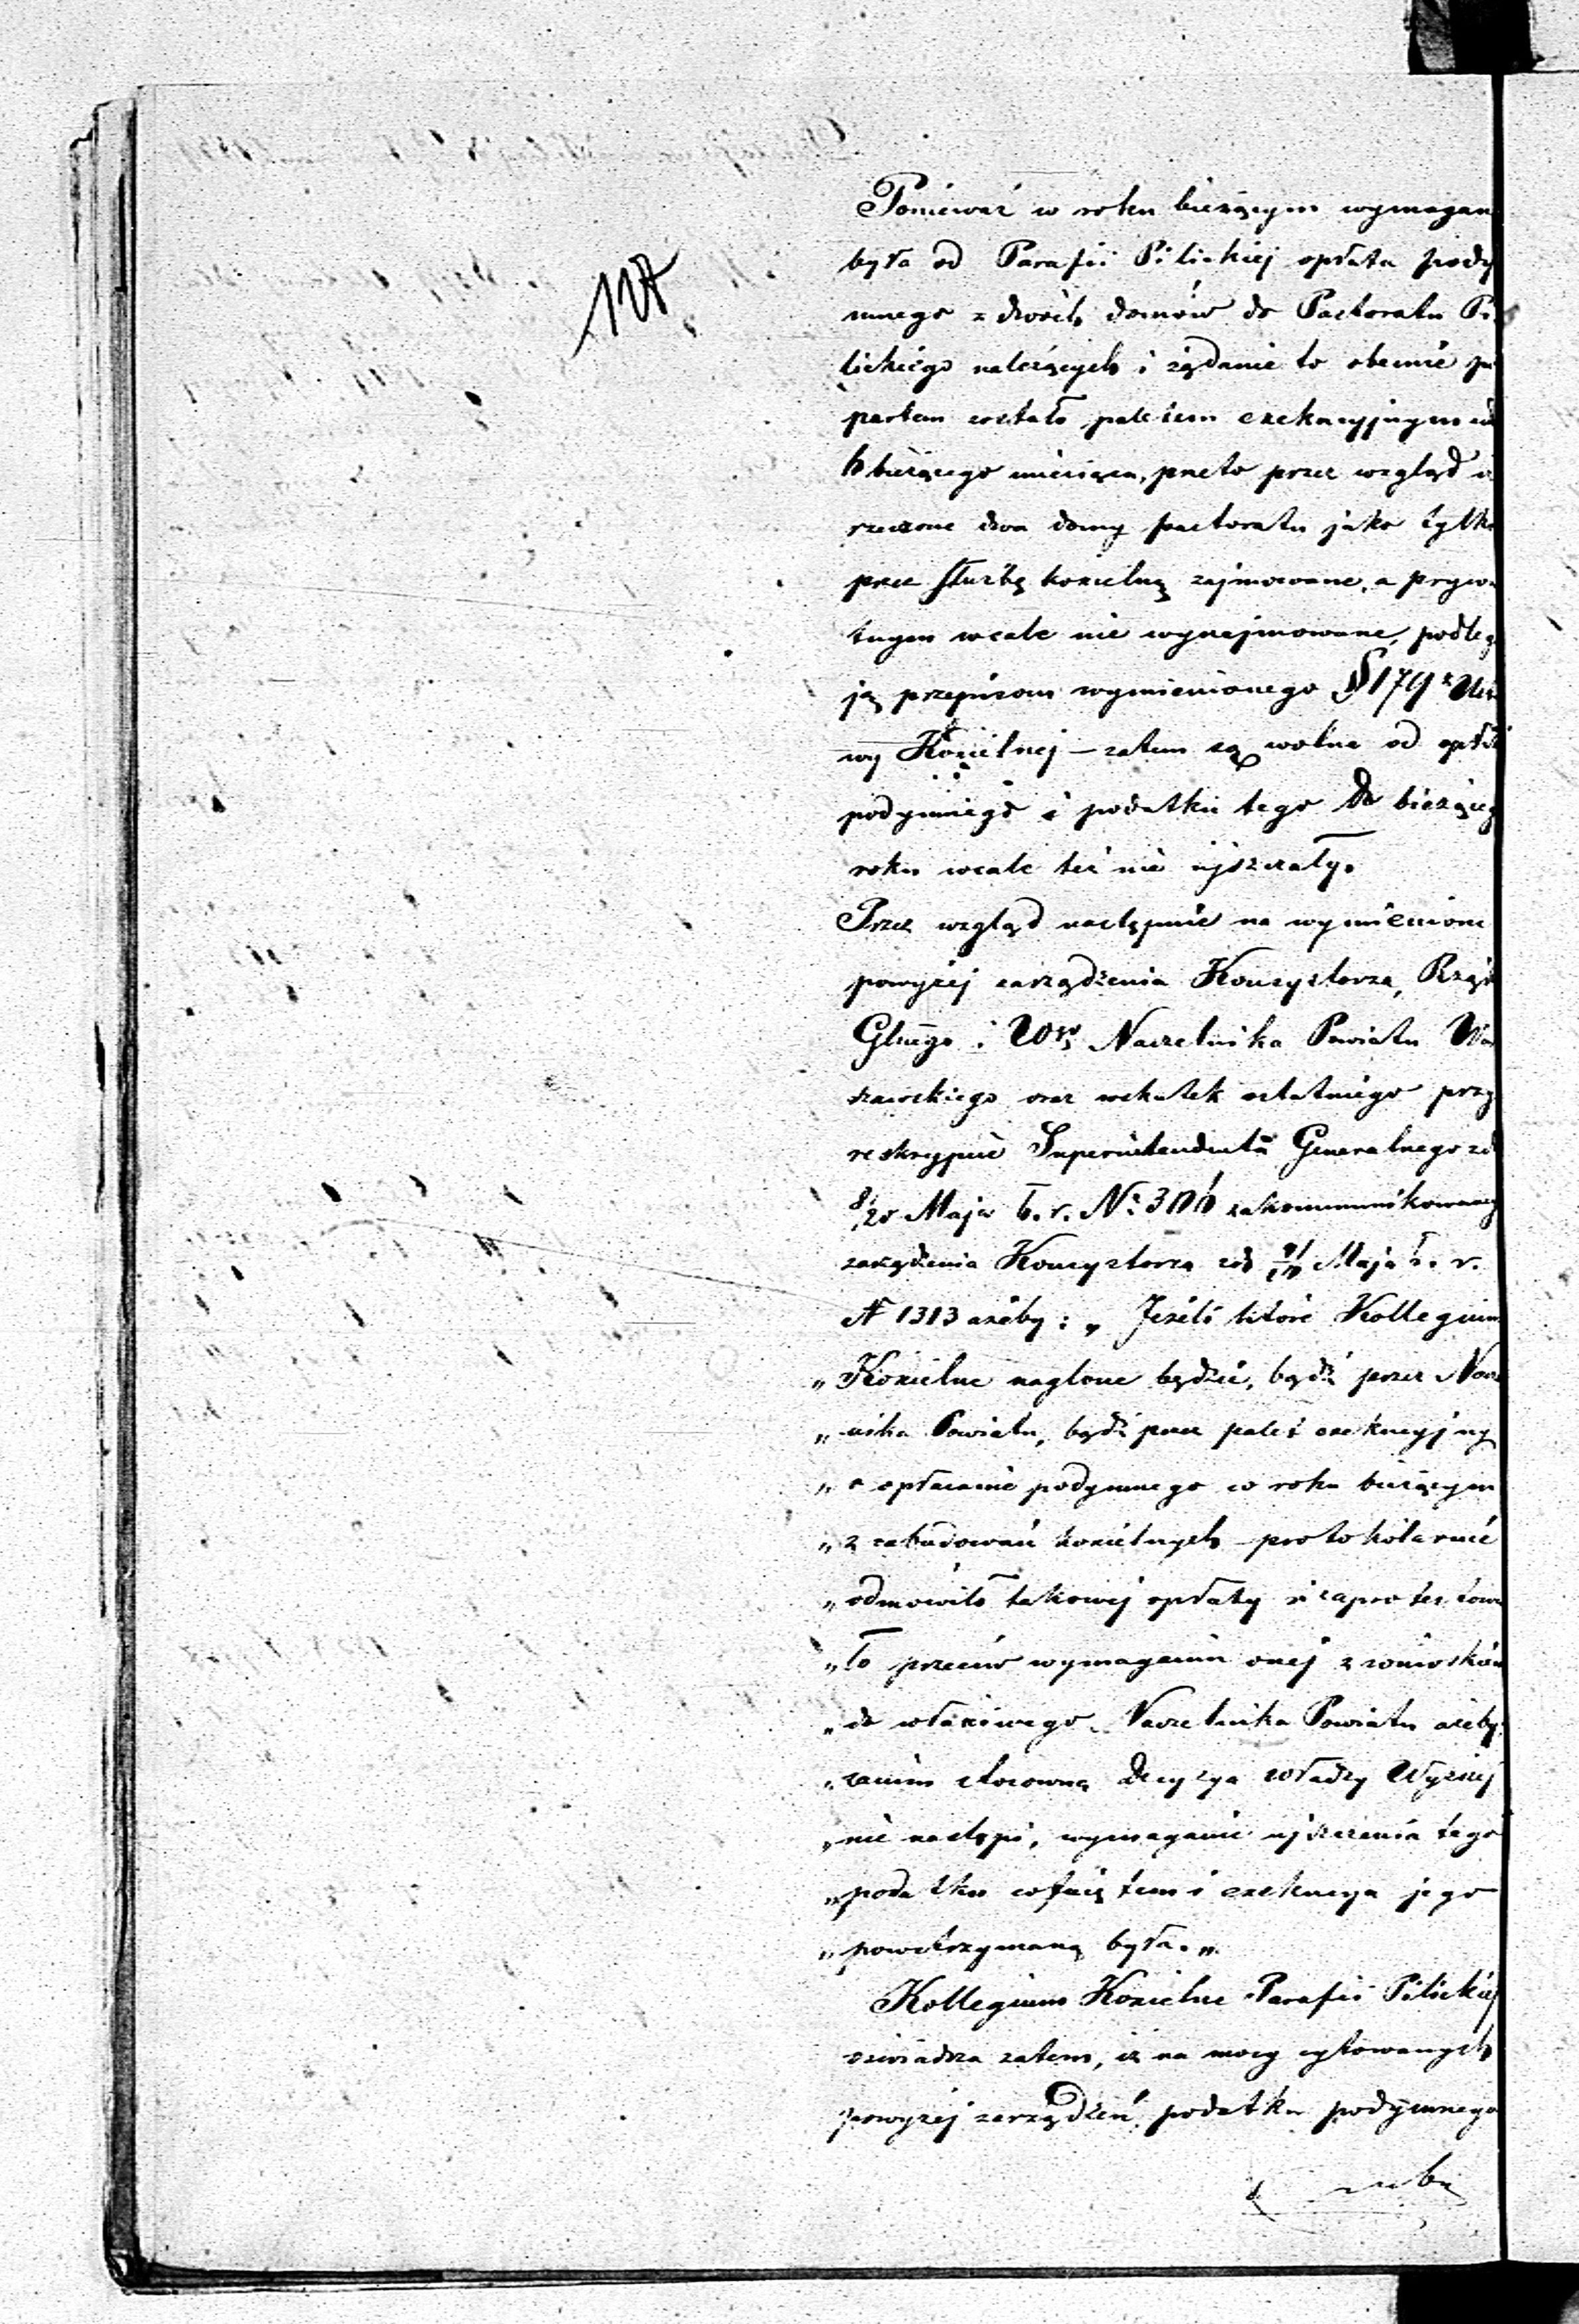 Ponieważ w roku bieżącym wymagan
była od Parafii Pilickiej opłata pody
mnego z dwóch domów do Pastoratu Pi
lickiego należących i żądanie to obecnie po
partem zostało paletem exekucyjnym
bieżącego miesiąca, przeto przez wzgląd iż
rzeczone dwa domy pastoratu jako tylko
przez służbę kościelną zajmowane, a prywa
tnym wcale nie wynajmowane, podlega
ją przepisom wymienionego § 179 Usta
wy Kościelnej – zatem są wolne od opłat
podymnego i podatku tego do bieżąceg
roku wcale też nie uiszczały.
Przez wzgląd następnie na wymienione
powyżej zarządzenia Konsystorza, Rządu
Głnego i Naczelnika Powiatu War
szawskiego oraz wskutek ostatniego przy
reskrypcie Superintendenta Generalnego z d
8/20 Maja b. r. zakommunikowaneg
zarządzenia Konsystorza z d Maja b. r.
N 1313 ażeby: „Jeżeli które Kollegium
„Kościelne naglone będzie, bądź przez Nacz
„nika Powiatu, bądź przez palet exekucyjny
„o opłacanie podymnego w roku bieżącym
„z zabudowań kościelnych – protokólarnie
„odmówiło takowej opłaty i zaprotestowa
„ło przeciw wymaganiu onej z wnioskiem
„do właściwego Naczelnika Powiatu ażeby,
„zanim stosowna decyzya Władzy Wyższej
„nie nastąpi, wymaganie uiszczenia tego
„podatku cofniętem i exekucya jego
„powstrzymaną była."
Kollegium Kościelne Parafii Pilickiej
oświadcza zatem, iż na mocy cytowanych
powyżej zarządzeń podatku podymnego